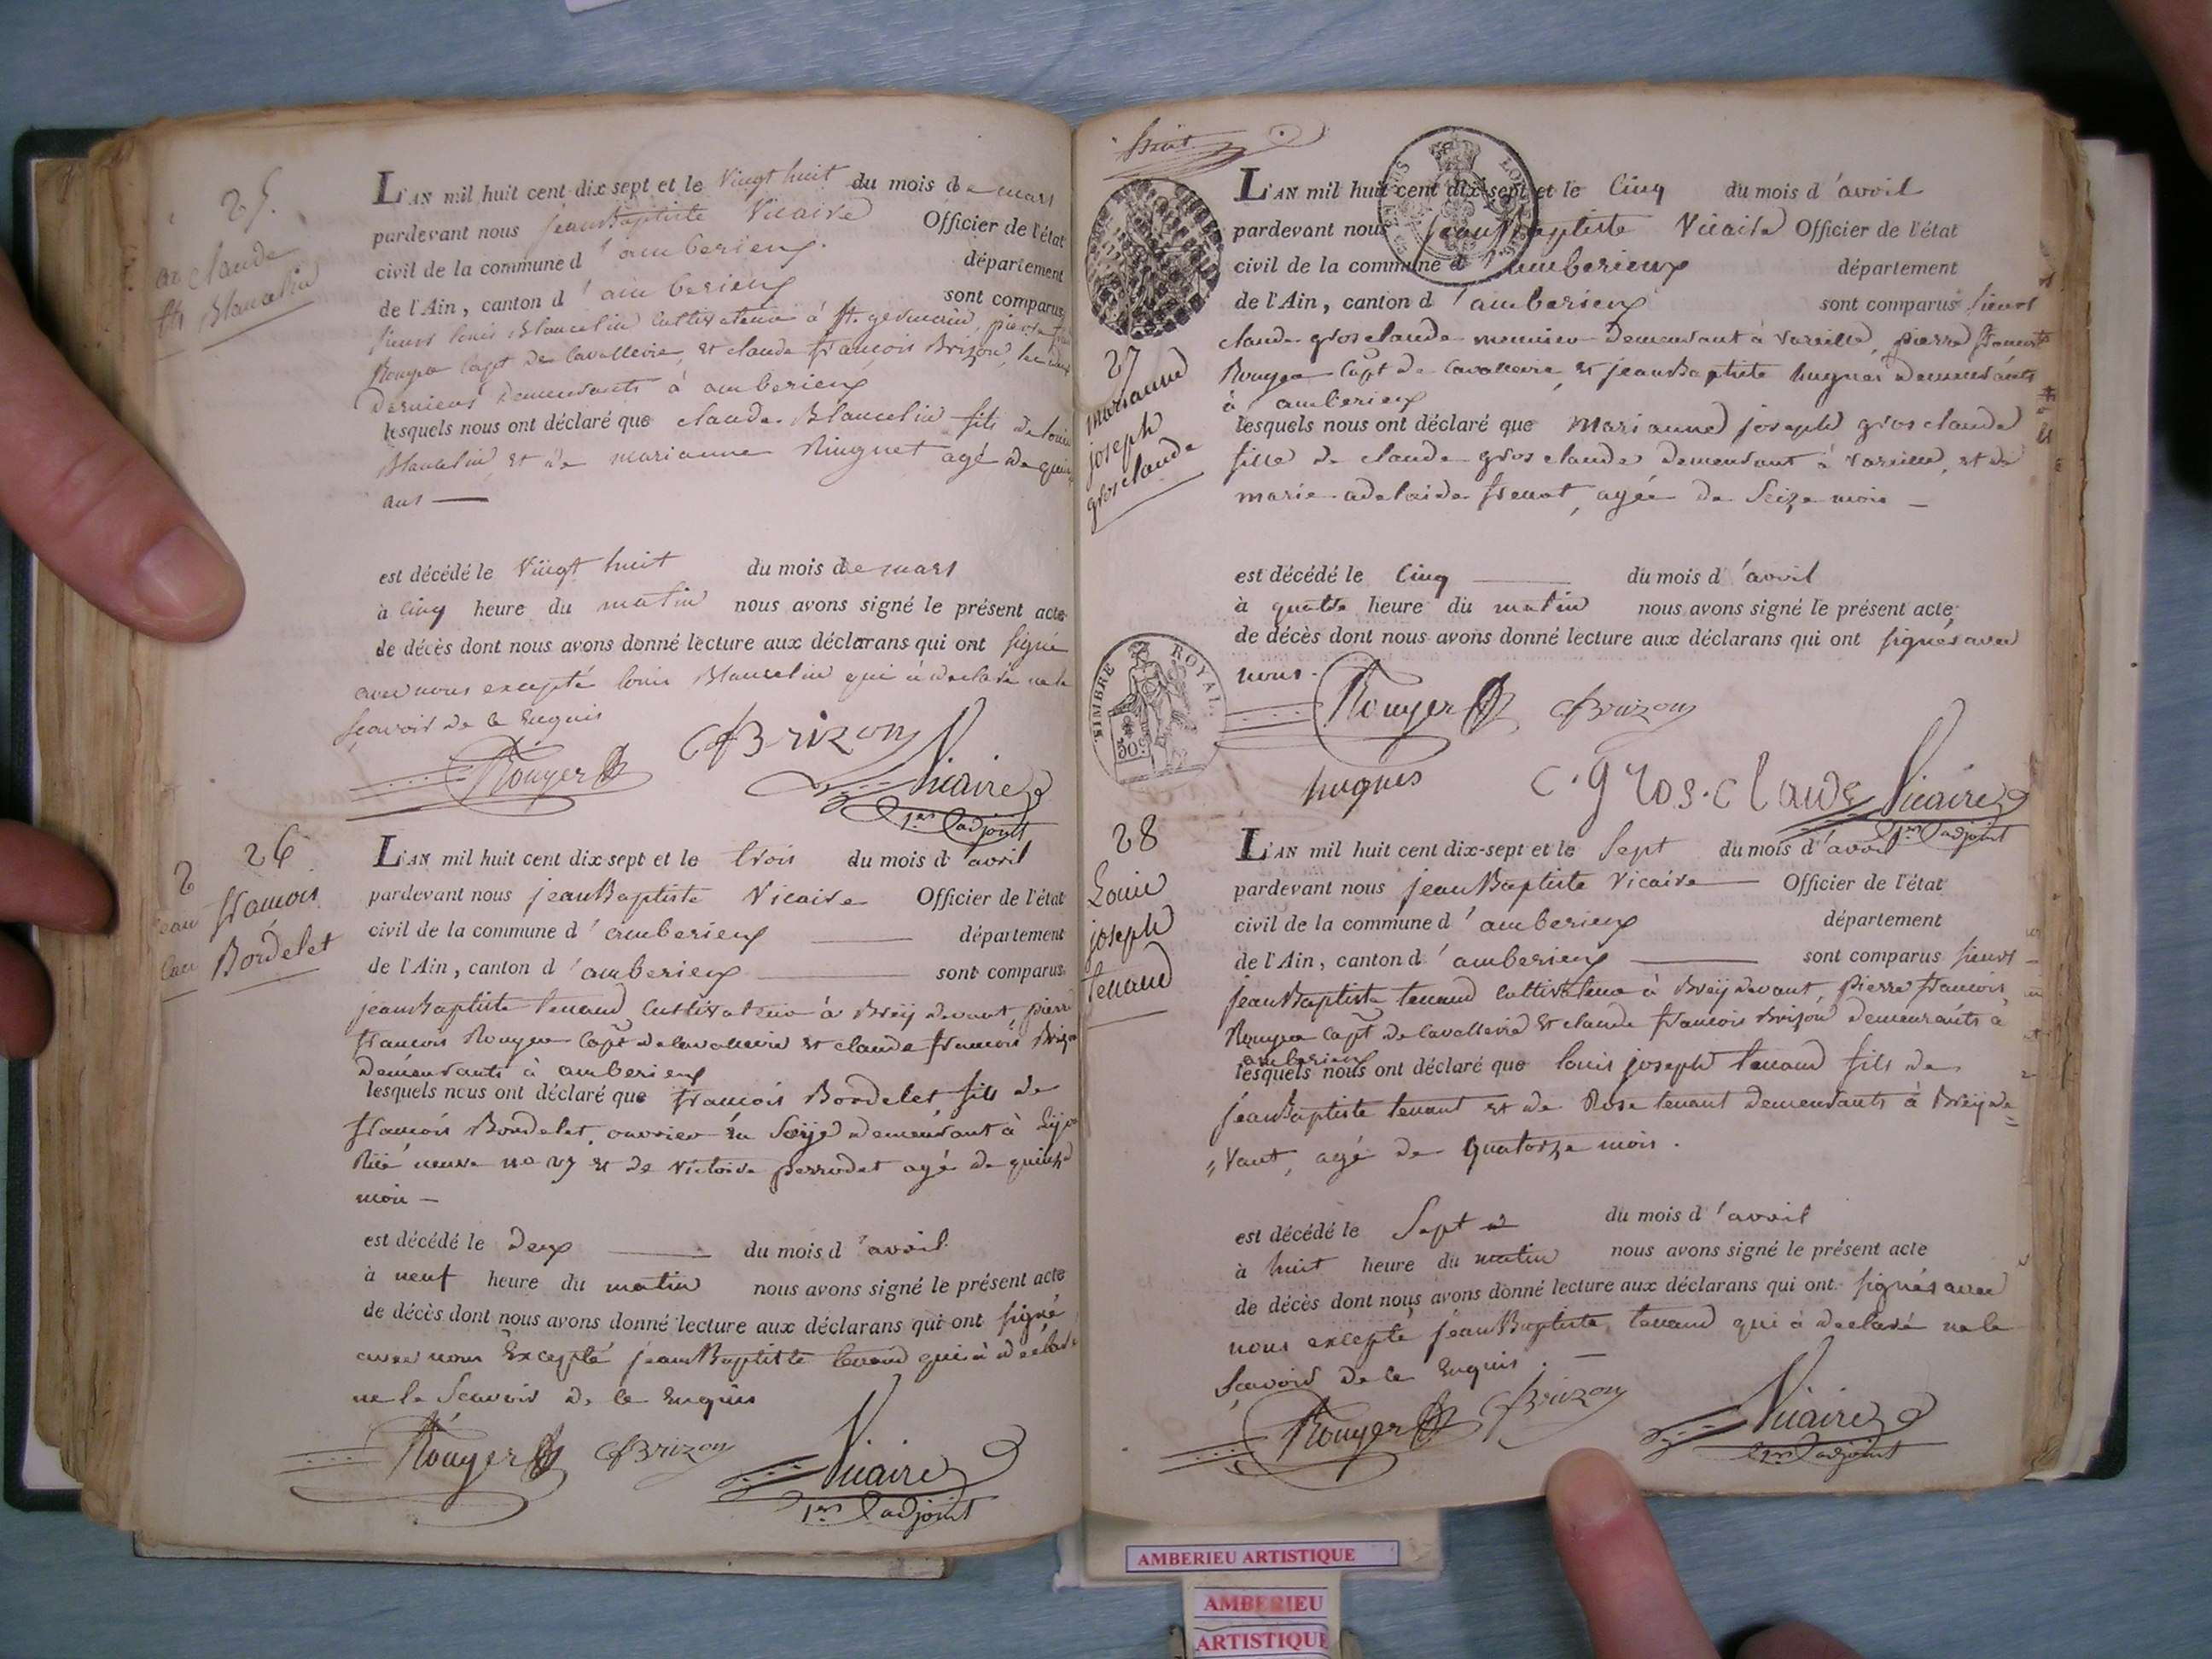 25.
claude
Blancelin
L'AN mil huit cent dix sept et le Vingt huit du mois de mars
pardevant nous jean Baptiste Vicaire Officier de l'état
civil de la commune d'amberieux département
de l'Ain, canton d'amberieux sont comparus
sieurs louis Blancelin Cultivateur à St. germain, pierre
Rouyer Capt de Cavallerie, et claude francois Brizon, les deux
derniers demeurants à amberieux
lesquels nous ont déclaré que claude Blancelin fils de louis
Blancelin et de marianne Ninguet agé de quinze
ans —
est décédé le Vingt huit du mois de mars
à Cinq heure du matin nous avons signé le présent acte
de décès dont nous avons donné lecture aux déclarans qui ont signé
avec nous excepté louis Blancelin qui à declaré ne le
scavoir de ce Enquis
Rouyer CfBrizon Vicaire
1er adjoint
26
francois
Bordelet
L'AN mil huit cent dix sept et le trois du mois d'avril
pardevant nous jean Baptiste Vicaire Officier de l'état
civil de la commune d'amberieux département
de l'Ain, canton d'amberieux sont comparus
jean Baptiste tenand Cultivateur à Breydevant, pierre
francois Rouyer Capt de Cavallerie et claude francois Brizon
demeurants à amberieux
lesquels nous ont déclaré que francois Bordelet fils de
francois Bordelet, ouvrier En Soye demeurant à Lyon
Rüe neuve no 27 et de Victoire perrodet agé de quinze
mois —
est décédé le deux du mois d'avril
à neuf heure du matin nous avons signé le présent acte
de décès dont nous avons donné lecture aux déclarans qui ont signé
avec nous Excepté jean Baptiste tenand qui à déclaré
ne le Scavoir de ce Enquis
Rouyer CfBrizon Vicaire
1er adjoint
huit
27
marianne
joseph
gros claude
L'AN mil huit cent dix-sept et le Cinq du mois d'avril
pardevant nous jean Baptiste Vicaire Officier de l'état
civil de la commune d'amberieux département
de l'Ain, canton d'amberieux sont comparus sieurs
claude gros claude meunier demeurant à Vareille, pierre francois
Rouyer Capt de Cavallerie, et jean Baptiste hugues demeurants
à amberieux
lesquels nous ont déclaré que Marianne joseph gros claude
fille de claude gros claude demeurant à Vareille, et de
marie adelaide frenat, agée de Seize mois —
est décédé le Cinq du mois d'avril
à quatre heure du matin nous avons signé le présent acte
de décès dont nous avons donné lecture aux déclarans qui ont signés avec
nous.
TIMBRE ROYAL
30c
Rouyer CfBrizon
hugues C. gros. claude Vicaire
1er adjoint
28
Louis
joseph
tenand
L'AN mil huit cent dix-sept et le Sept du mois d'avril
pardevant nous jean Baptiste Vicaire Officier de l'état
civil de la commune d'amberieux département
de l'Ain, canton d'amberieux sont comparus sieurs
jean Baptiste tenand Cultivateur à Breydevant, pierre francois
Rouyer Capt de Cavallerie et claude francois Brizon demeurants à
amberieux
lesquels nous ont déclaré que louis joseph tenand fils de
jean Baptiste tenant et de Rose tenant demeurants à Breyde=
"Vant, agé de Quatorze mois.
est décédé le Sept du mois d'avril
à huit heure du matin nous avons signé le présent acte
de décès dont nous avons donné lecture aux déclarans qui ont signés avec
nous excepté jean Baptiste tenand qui à declaré ne le
Scavoir de ce Enquis. —
Rouyer CfBrizon Vicaire
1er adjoint
AMBERIEU ARTISTIQUE
AMBERIEU
ARTISTIQUE